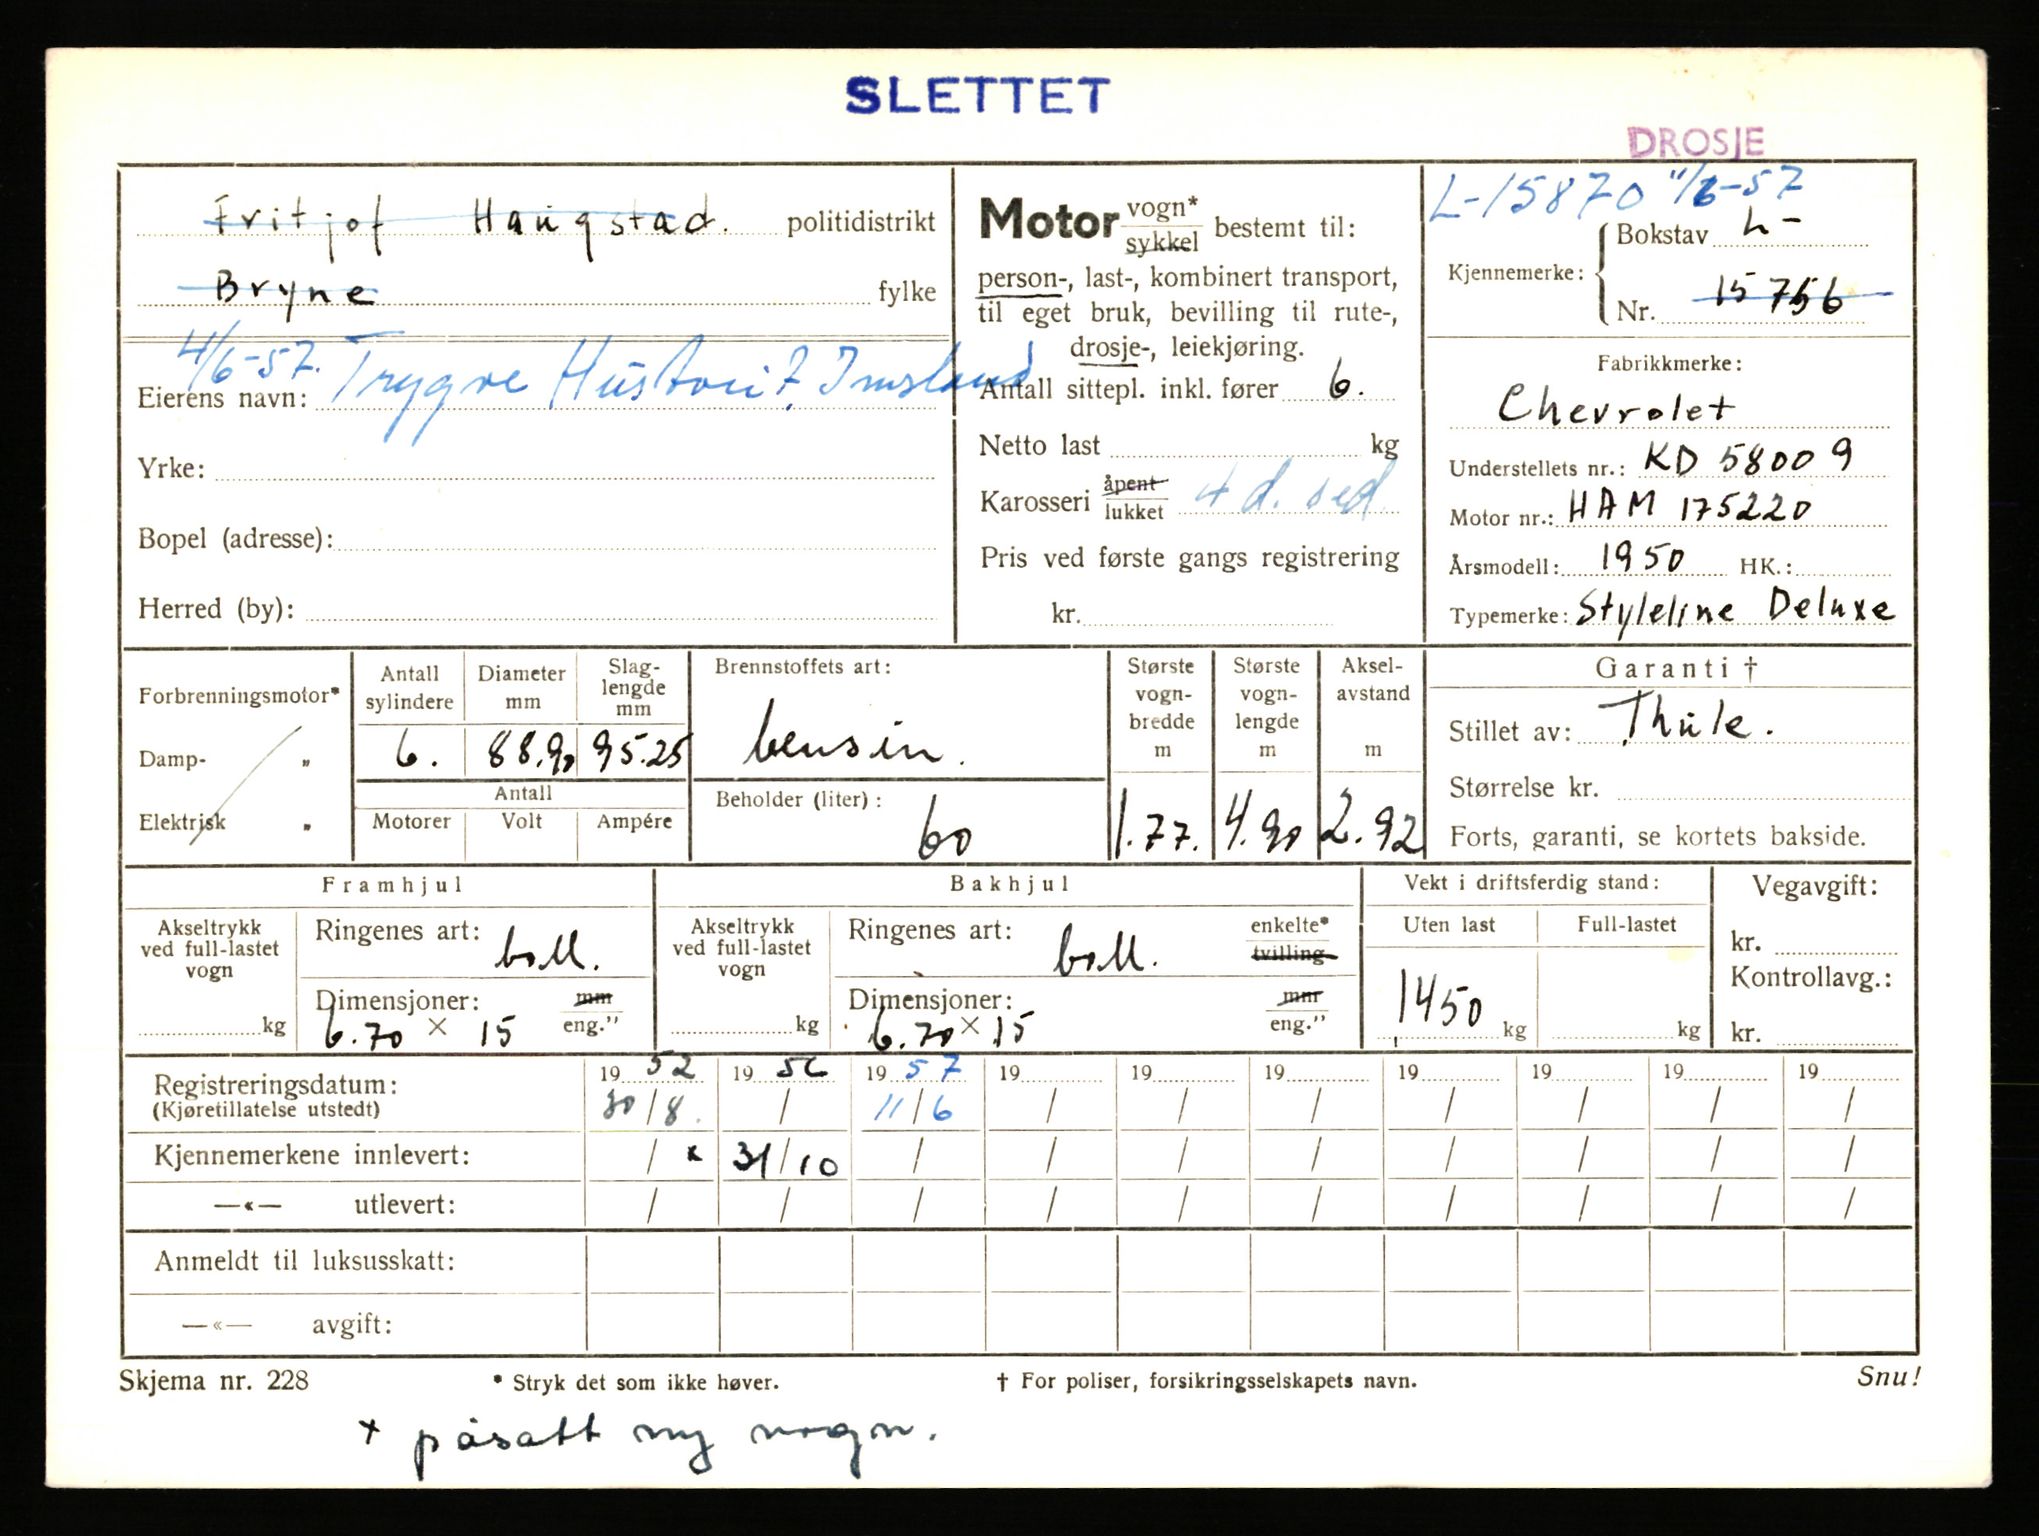 SLETTET
DROSJE
L-15870 11/6-57
Fritjof Haugstad. politidistrikt
Bryne fylke
4/6-57. Trygve
Eierens navn:
Yrke:
Bopel (adresse):
Herred (by):
Motor vogn*
sykkel bestemt til:
person-, last-, kombinert transport,
til eget bruk, bevilling til rute-,
drosje-, leiekjøring.
Antall sittepl. inkl. fører 6.
Netto last kg
Karosseri åpent
lukket 4 d. sed
Pris ved første gangs registrering
kr.
Kjennemerke: Bokstav L-
Nr. 15756
Fabrikkmerke:
Chevrolet
Understellets nr.: KD 58009
Motor nr.: HAM 175220
Årsmodell: 1950 HK.:
Typemerke: Styleline Deluxe
Forbrenningsmotor*
Damp- „
Elektrisk „
Antall sylindere
6.
Diameter mm
88.90
Slag-
lengde
mm
95.25
Antall
Motorer Volt Ampére
Brennstoffets art:
bensin.
Beholder (liter):
60
Største
vogn-
bredde
m
1.77.
Største
vogn-
lengde
m
4.90
Aksel-
avstand
m
2.92
Garanti †
Stillet av: Thule.
Størrelse kr.
Forts, garanti, se kortets bakside.
Framhjul
Akseltrykk
ved full-lastet
vogn
kg
Ringenes art: ball.
Dimensjoner: mm
6.70 × 15 eng.”
Bakhjul
Akseltrykk
ved full-lastet
vogn
kg
Ringenes art: ball. enkelte*
tvilling
Dimensjoner: mm
6.70 × 15 eng.”
Vekt i driftsferdig stand:
Uten last Full-lastet
1450 kg kg
Vegavgift:
kr.
Kontrollavg.:
kr.
Registreringsdatum: 19 52 19 56 19 57 19 19 19 19 19 19 19
(Kjøretillatelse utstedt) 30/8. / 11/6 / / / / / / /
Kjennemerkene innlevert: / x 31/10 / / / / / / / /
—«— utlevert: / / / / / / / / / /
Anmeldt til luksusskatt:
—«— avgift:
Skjema nr. 228 * Stryk det som ikke høver. † For poliser, forsikringsselskapets navn. Snu!
+ påsatt ny vogn.